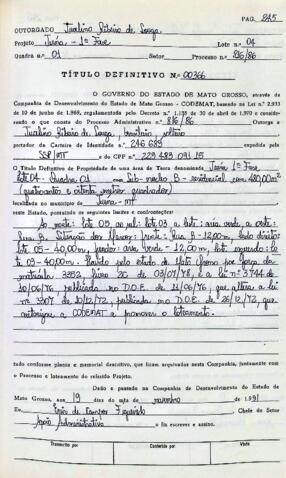 PAG. 245
OUTORGADO Jualino Ribeiro de Souza
Projeto Juína - 1ª Fase Lote n.º 04
Quadra n.º 01 Setor Processo n.º 816/86
TÍTULO DEFINITIVO N.º 00366
O GOVERNO DO ESTADO DE MATO GROSSO, através da
Companhia de Desenvolvimento do Estado de Mato Grosso - CODEMAT, baseado na Lei n.º 2.933
10 de junho de 1969, regulamentado pelo Decreto n.º 1.138 de 30 de abril de 1970 e considerando
o que consta do Processo Administrativo n.º 816/86 Outorga a
Jualino Ribeiro de Souza, brasileiro, solteiro
portador da Carteira de Identidade n.º 246 685
SSP/MT e do CPF n.º 229 483 091 15
O Título Definitivo de Propriedade de uma área de Terra denominada Juína 1ª Fase,
lote 04 - Quadra 01 com 480,00m²
(quatrocentos e oitenta metros quadrados)
localizada no município de Juína - MT
neste Estado, possuindo os seguintes limites e confrontações:
Ao norte: lote 05, ao sul: lote 03, a leste: área verde, a oeste:
Rua B. frente: Rua B - 12,00m, lado direito:
lote 05 - 40,00m, fundos: área verde - 12,00m, lado esquerdo: lote
03 - 40,00m. pelo estado de Mato Grosso por força da
matrícula 3352, livro 20 de 03/07/78, e a lei nº 3744 de
10/06/76, publicada no D.O.E. de 11/06/76, que altera a lei
nº 3307 de 10/12/72, publicada no D.O.E. de 26/12/72, que
autoriza a CODEMAT a promover o loteamento.
tudo conforme planta e memorial descritivo, que ficam arquivados nesta Companhia, juntamente com
o Processo e loteamento do referido Projeto.
Dado e passado na Companhia de Desenvolvimento do Estado de
Mato Grosso, aos 19 dias do mês de novembro de 1.991
Eu de Campos Figueiredo Chefe do Setor
Apoio Administrativo o fiz escrever e assino.
Transcrito por Conferido por Visto